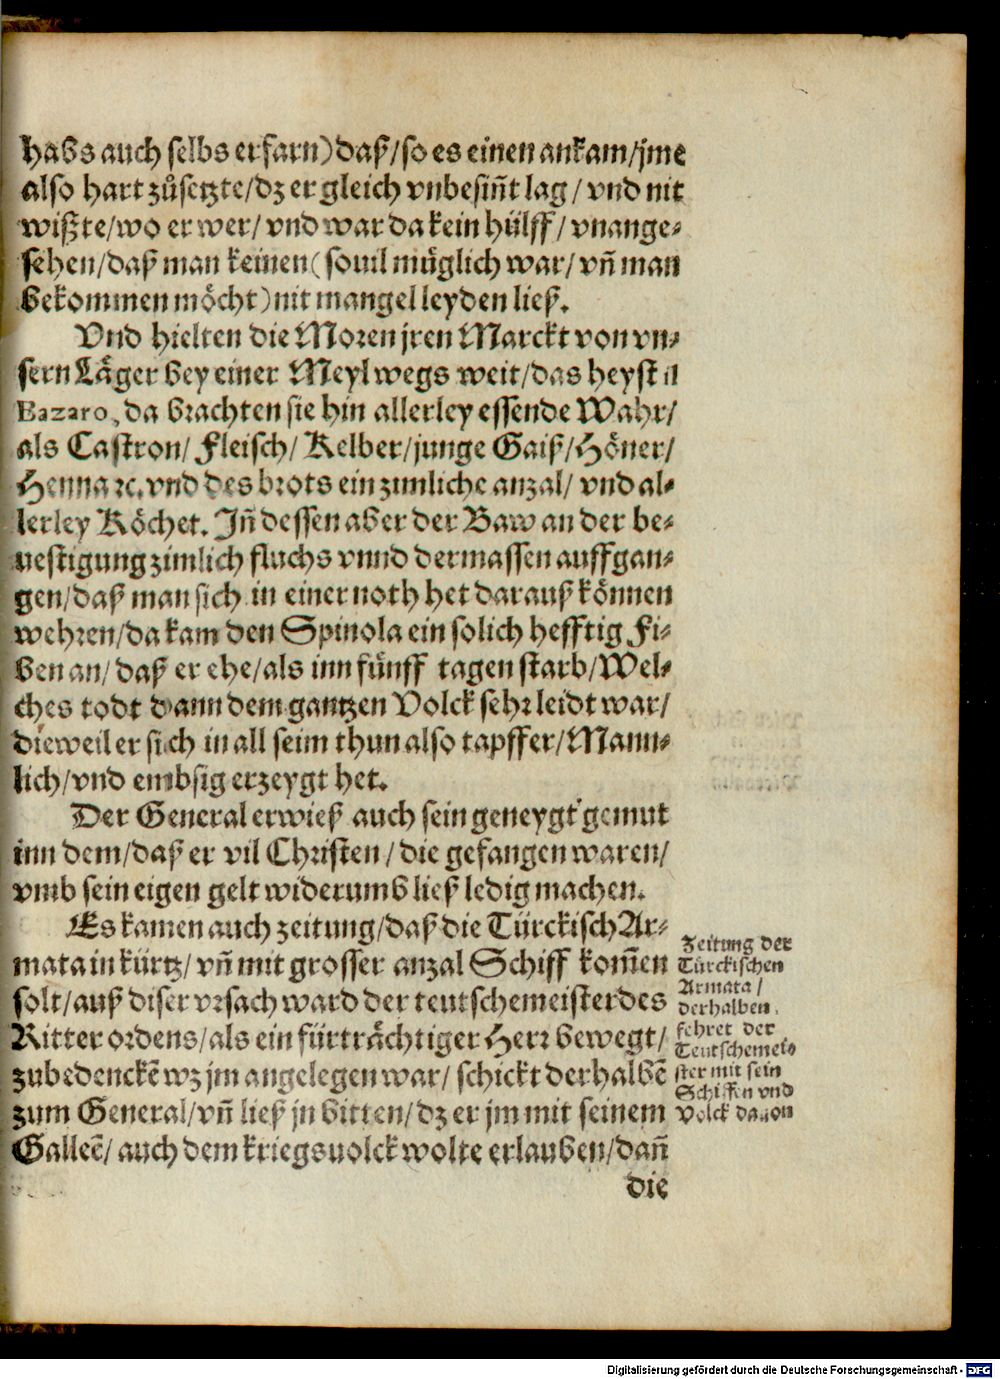 habs auch selbs erfarn) daß/ so es einen ankam/ jme
also hart zůsetzte/ dz er gleich vnbesiñt lag/ vnd nit
wißte/ wo er wer/ vnd war da kein hülff/ vnange-
sehen/ daß man keinen (souil müglich war/ vñ man
bekommen möcht) nit mangel leyden ließ.
Vnd hielten die Moren jren Marckt von vn-
sern Läger bey einer Meyl wegs weit/ das heyst il
Bazaro, da brachten sie hin allerley essende Wahr/
als Castron/ Fleisch/ Kelber/ junge Gaiß/ Höner/
Henna ꝛc. vnd des brots ein zimliche anzal/ vnd al-
lerley Köchet. Jñ dessen aber der Baw an der be-
uestigung zimlich fluchs vnnd dermassen auffgan-
gen/ daß man sich in einer noth het darauß können
wehren/ da kam den Spinola ein solich hefftig Fi-
ben an/ daß er ehe/ als inn fünff tagen starb/ Wel-
ches todt dann dem gantzen Volck sehr leidt war/
dieweil er sich in all seim thun also tapffer/ Mann-
lich/ vnd embsig erzeygt het.
Der General erwieß auch sein geneygt gemut
inn dem/ daß er vil Christen/ die gefangen waren/
vmb sein eigen gelt widerumb ließ ledig machen.
Es kamen auch zeitung/ daß die Türckisch Ar-
mata in kürtz/ vñ mit grosser anzal Schiff kom̃en
solt/ auß diser vrsach ward der teutschemeister des
Ritter ordens/ als ein fürträchtiger Herr bewegt/
zubedenckẽ wz jm angelegen war/ schickt derhalbẽ
zum General/ vñ ließ jn bitten/ dz er jm mit seinem
Galleẽ/ auch dem kriegsuolck wolte erlauben/ dañ
die
Zeitung der
Türckischen
Armata/
derhalben
fehret der
Teutschemei-
ster mit sein
Schiffen vnd
Volck dauon
Digitalisierung gefördert durch die Deutsche Forschungsgemeinschaft - DFG